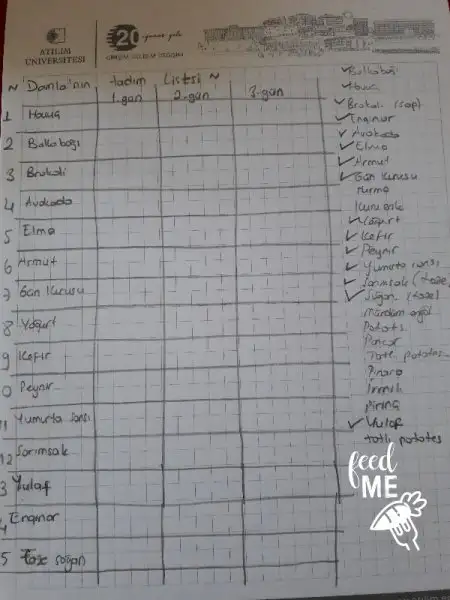 ATILIM
ÜNİVERSİTESİ
20
~ Damla'nın tadım Listesi ~
1.gün 2.gün 3.gün
1 Havuç
2 Balkabağı
3 Brokoli
4 Avokado
5 Elma
6 Armut
7 Gün kurusu
8 Yoğurt
9 Kefir
0 Peynir
11 Yumurta sarısı
12 Sarımsak
3 Yulaf
4 Enginar
5 Taze soğan
✓ Balkabağı
✓ Havuç
✓ Brokoli (sap)
✓ Enginar
✓ Avokado
✓ Elma
✓ Armut
✓ Gün kurusu
hurma
✓ Yoğurt
✓ Kefir
✓ Peynir
✓ Yumurta sarısı
✓ Sarımsak (taze)
✓ Soğan (taze)
Patates
Pancar
Tatlı patates
Pırasa
İrmik
Pirinç
✓ Yulaf
tatlı patates
feed
ME